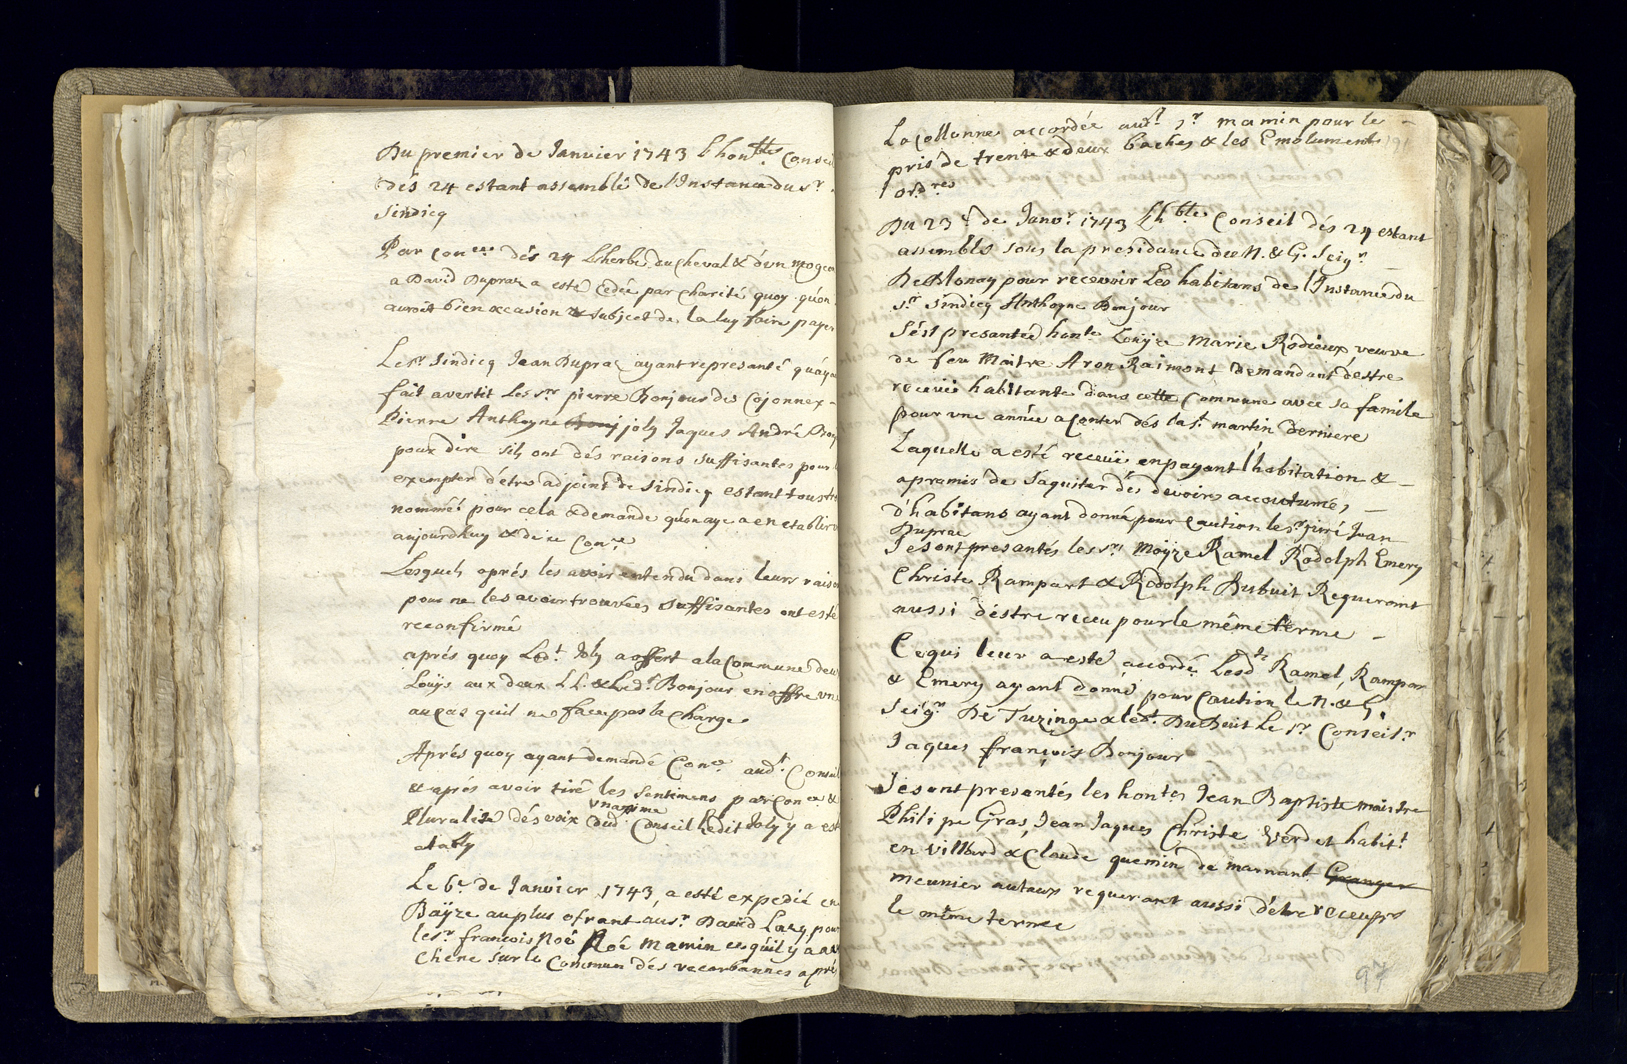 Du premier de Janvier 1743 l'hon.ble Conseil
dés 24 estant assemblé de l'Instance du Sr.
Sindicq
Par Con.ce dés 24 L'herbe du Cheval & d'un mogeon
a David Dupraz a esté Cedée par Charité quoy qu'on
auroit bien occasion & subject de la luy faire payer
Le Sr. Sindicq Jean Dupraz ayant representé qu'ayant
fait avertit Les Srs. pierre Bonjour des Cojonnex
Pierre Anthoyne joly Jaques André Bonj
pour dire S'ils ont dés raisons suffisantes pour
exempter d'étre adjoint de Sindicq estant tous
nommés pour cela & demande qu'on aye a en etablir
aujourdhuy & dire Con.ce
Lesquels aprés les avoir entendu dans leurs raisons
pour ne les avoir trouvées suffisantes ont esté
reconfirmé
aprés quoy Led.t Joly a offert a la Commune deux
Louÿs aux deux LL. & Led.t Bonjour en offre un
au cas qu'il ne fasse pas la Charge
Aprés quoy ayant demandé Con.ce aud.t Conseil
& aprés avoir tiré les Sentimens par Con.ce &
unanime
Pluralité dés voix dud. Conseil Ledit Joly y a esté
etably
Le 6.e de Janvier 1743, a esté expedié en
Bäÿze au plus ofrant au Sr. David pour
le Sr. francois Noé Noé Mamin ce qu'il y a
Chene sur le Commun dés recorbannes apré
La Collonne accordée aud.t Sr. mamin pour le
pris de trente & deux baches & les Emolument
l'ord.res
Du 23.e de Janv.r 1743 L'h.ble Conseil dés 24 estant
assemblés sous la presidance du N. & G. Seigr.
De Blonay pour recevoir Les habitans de l'Instance du
Sr. Sindicq Anthoyne Bonjour
S'est presantée hon.te Louÿze Marie Rodieux veuve
de feu Maitre Aron Raimont demandant d'estre
receüe habitante dans cette Commune avec sa famile
pour une année a Conter dés la S.t martin derniere
Laquelle a esté receüe en payant l'habitation &
a promis de S'aquiter dés devoirs accoutumés
d'habitans ayant donné pour Caution le Sr. juré Jean
Dupraz
Se sont presantés les Srs. Moÿze Ramel Rodolph Emery
Christe Rampart & Rodolph Dubuit Requeroint
aussi d'éstre receu pour le même terme
Ce qui leur a esté accordé Lesd.ts Ramel, Rampar
& Emery ayant donné pour Caution le N. & G.
Seigr. De Turinge & led.t Dubuit Le Sr. Conseil.r
Jaques françois Bonjour
Se sont presentés les hon.tes Jean Baptiste maistre
Philipe Gras, Jean Jaques Christe Verd et habit.t
en Villard & Claude quemin de marnant Granger
meunier autaux requerant aussi d'étre receu pr
le même terme
97